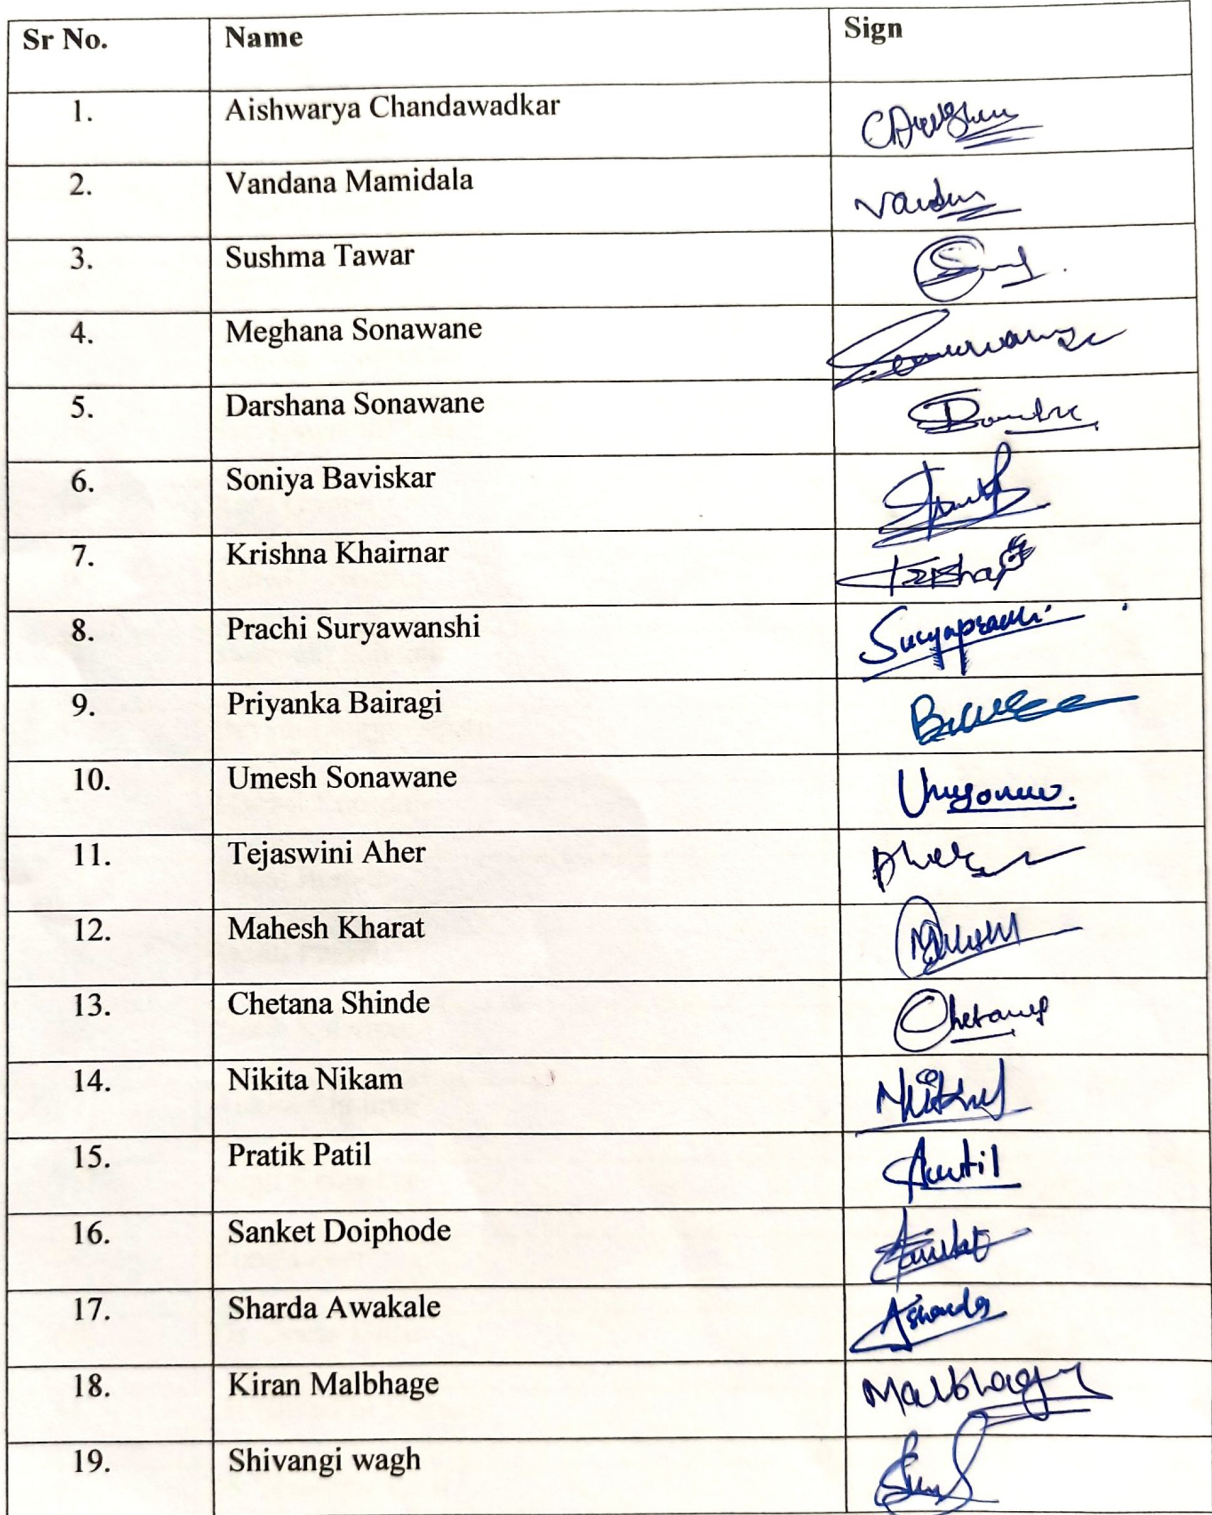 Sr No. Name Sign
1. Aishwarya Chandawadkar
2. Vandana Mamidala
3. Sushma Tawar
4. Meghana Sonawane
5. Darshana Sonawane
6. Soniya Baviskar
7. Krishna Khairnar
8. Prachi Suryawanshi Suryaprachi
9. Priyanka Bairagi
10. Umesh Sonawane
11. Tejaswini Aher
12. Mahesh Kharat
13. Chetana Shinde Chetana
14. Nikita Nikam
15. Pratik Patil
16. Sanket Doiphode
17. Sharda Awakale Asharda
18. Kiran Malbhage Malbhage
19. Shivangi wagh